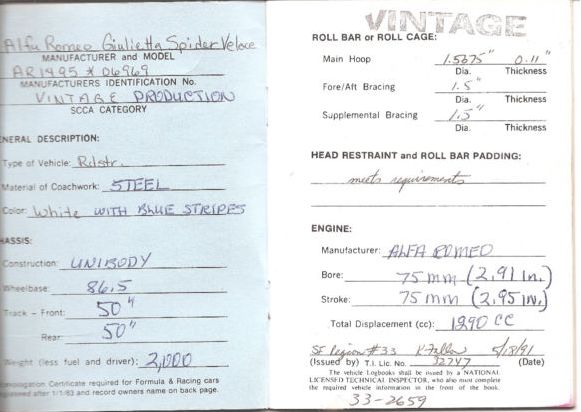 Alfa Romeo Giulietta Spider Veloce
MANUFACTURER and MODEL
AR1495 * 06969
MANUFACTURERS IDENTIFICATION No.
VINTAGE PRODUCTION
SCCA CATEGORY
ENERAL DESCRIPTION:
Type of Vehicle: Rdstr.
Material of Coachwork: STEEL
Color: White WITH BLUE STRIPES
HASSIS:
Construction: UNIBODY
Wheelbase: 86.5
Track - Front: 50"
Rear: 50"
Weight (less fuel and driver): 2,000
Homologation Certificate required for Formula & Racing cars
after 1/1/83 and record owners name on back page.
VINTAGE
ROLL BAR or ROLL CAGE:
Main Hoop 1.5675" 0.11"
Dia. Thickness
Fore/Aft Bracing 1.5"
Dia. Thickness
Supplemental Bracing 1.5"
Dia. Thickness
HEAD RESTRAINT and ROLL BAR PADDING:
meets requirements
ENGINE:
Manufacturer: ALFA ROMEO
Bore: 75 mm (2.91 in.)
Stroke: 75 mm (2.95 IN.)
Total Displacement (cc): 1290 CC
SF Region #33 5/18/91
(Issued by) T.I. Lic. No. 32747 (Date)
The vehicle Logbooks shall be issued by a NATIONAL
LICENSED TECHNICAL INSPECTOR, who also must complete
the required vehicle information in the front of the book.
33-2659